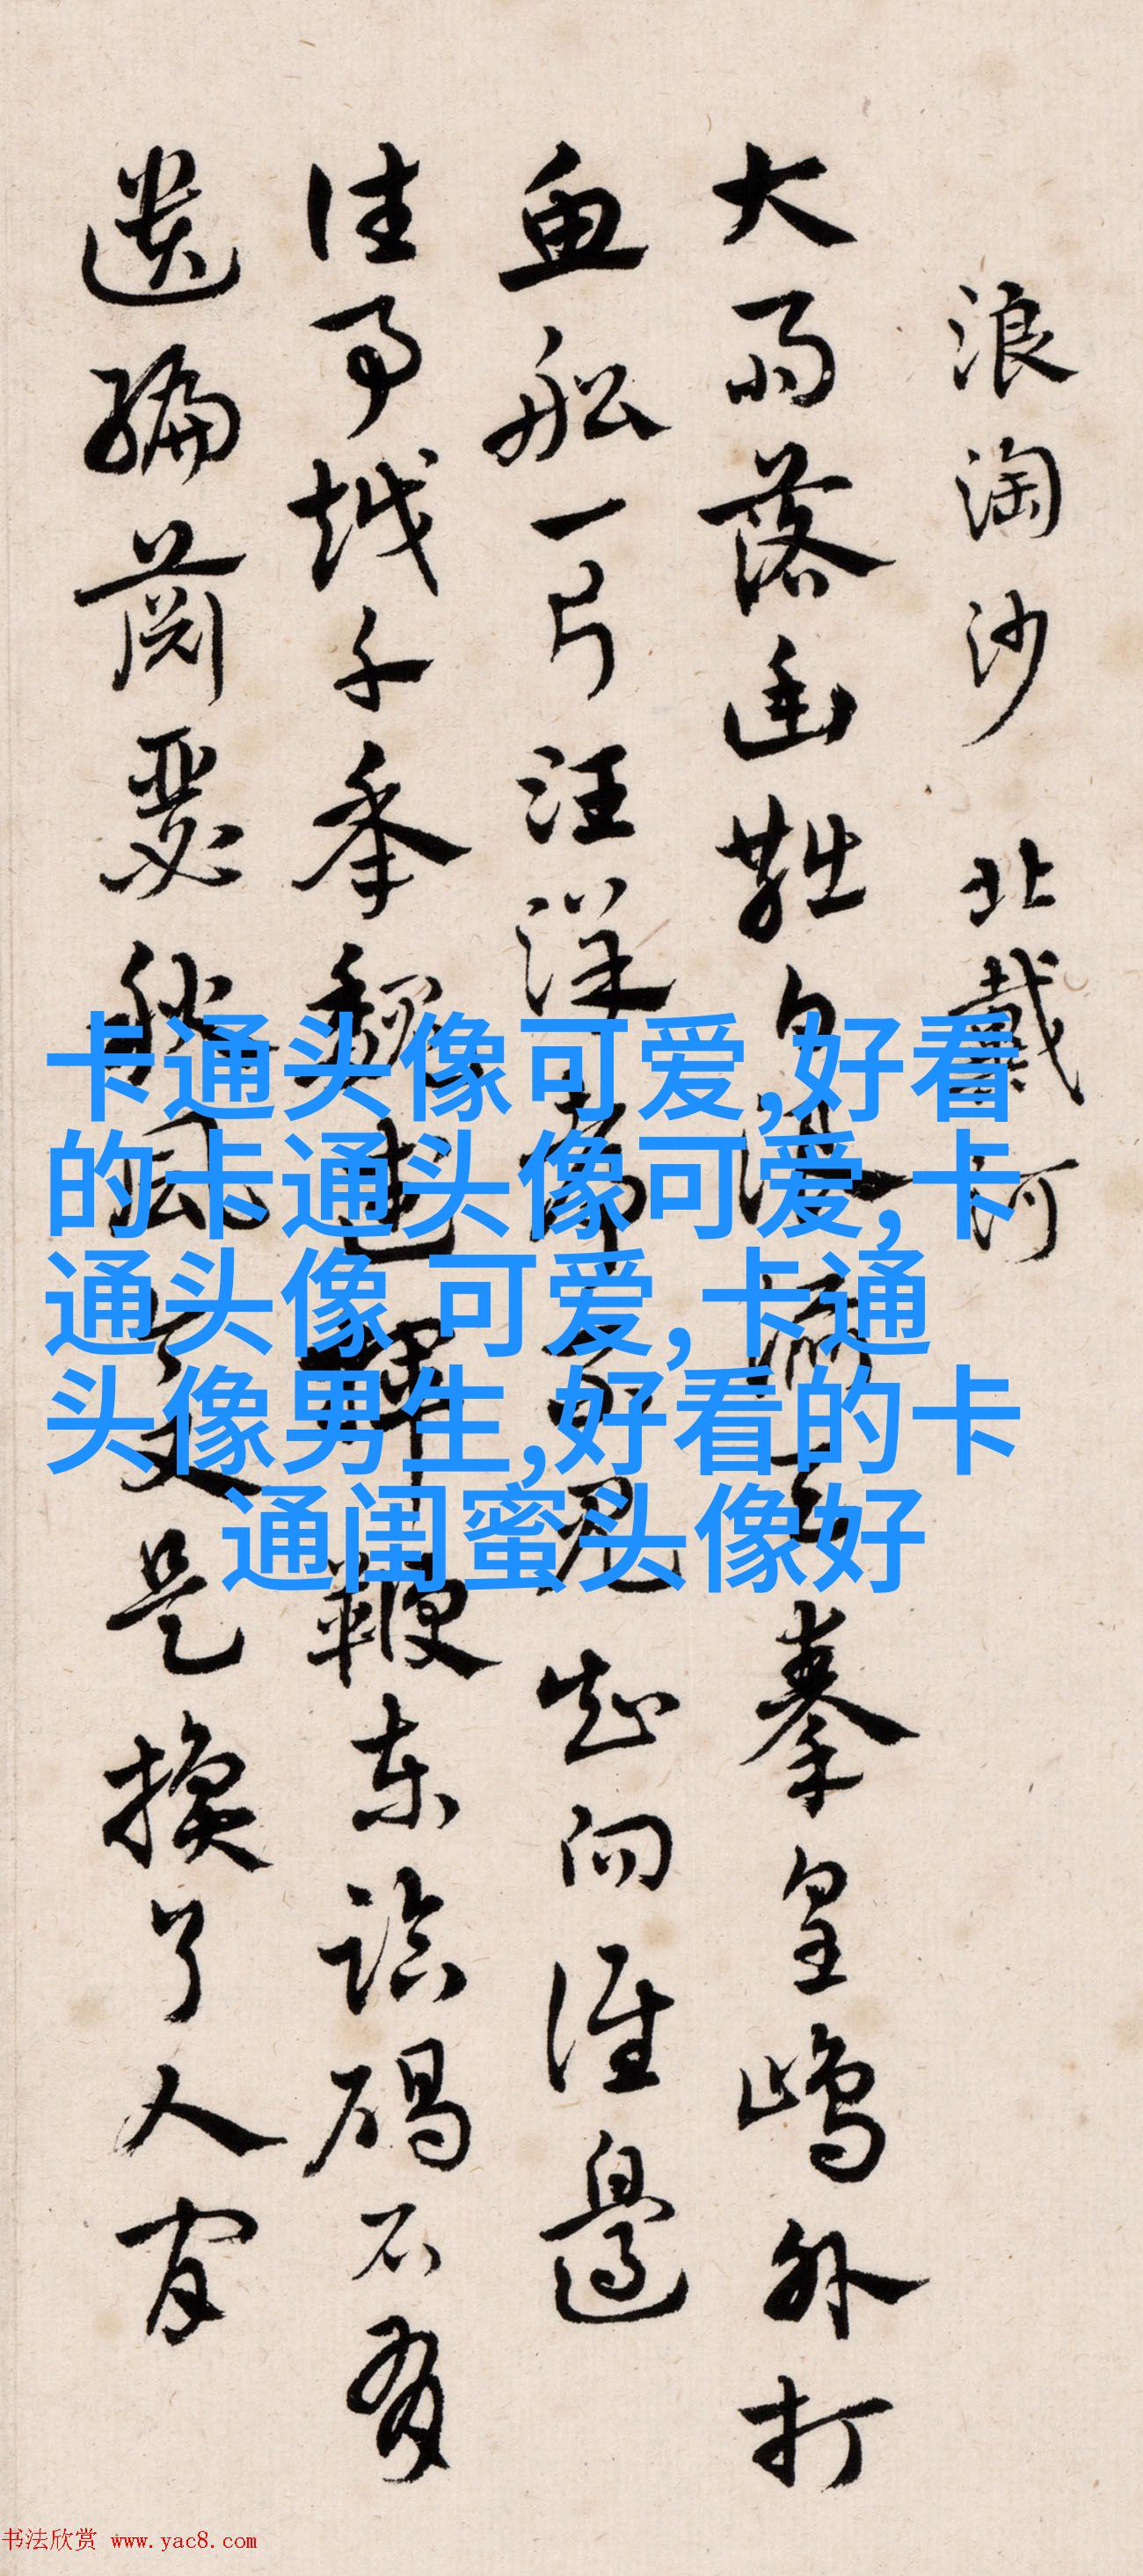 浪淘沙 北戴河
大雨落幽燕白浪滔天秦皇嶋外打
魚船一片汪洋都不見知向誰邊
往事越千年魏武揮鞭東臨碣石有
遺編蕭瑟秋風今又是換了人間
卡通头像可爱,好看
的卡通头像可爱,卡
通头像 可爱,卡通
头像男生,好看的卡
通闺蜜头像好
书法欣赏 www.yac8.com